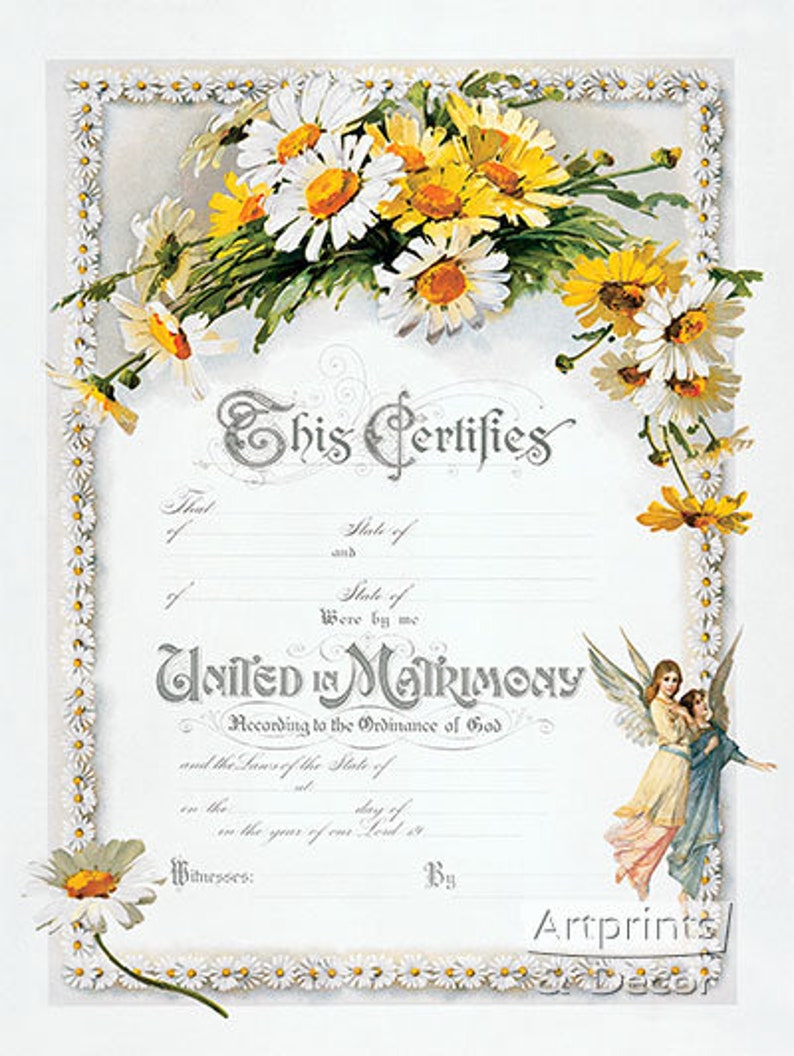 This Certifies
That
of State of
and
of State of
Were by me
United in Matrimony
According to the Ordinance of God
and the Laws of the State of
at
on the day of
in the year of our Lord 19
Witnesses: By
Artprints
& Decor